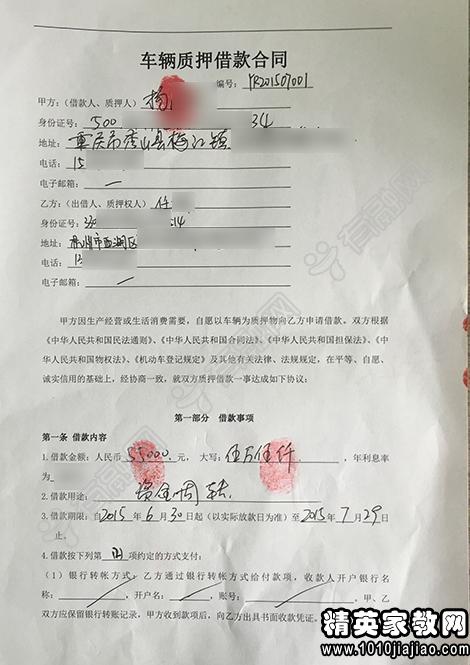 车辆质押借款合同
编号：YR201507001
甲方：（借款人、质押人）杨
身份证号：500 34
地址：重庆市秀山县梅江镇
电话：15
电子邮箱：
乙方：（出借人、质押权人）任
身份证号：33 14
地址：杭州市西湖区
电话：13
电子邮箱：
甲方因生产经营或生活消费需要，自愿以车辆为质押物向乙方申请借款。双方根据
《中华人民共和国民法通则》、《中华人民共和国合同法》、《中华人民共和国担保法》、《中
华人民共和国物权法》、《机动车登记规定》及其他有关法律、法规规定，在平等、自愿、
诚实信用的基础上，经协商一致，就双方质押借款一事达成如下协议：
第一部分 借款事项
第一条 借款内容
1.借款金额：人民币 55000. 元， 大写：伍万伍仟 ，年利息率
为
2.借款用途： 资金周转
3.借款期限：自2015 年 6 月 30 日起（以实际放款日为准）至 2015 年 7 月 29 日
止。
4.借款按下列第 项约定的方式支付：
（1）银行转帐方式：乙方通过银行转帐方式给付款项，收款人开户银行名
称： ，开户名： ，账号： ，甲、乙
双方应保留银行转账记录，甲方收到款项后，向乙方出具书面收款凭证。
有融网
有融网
精英家教网
www.1010jiajiao.com